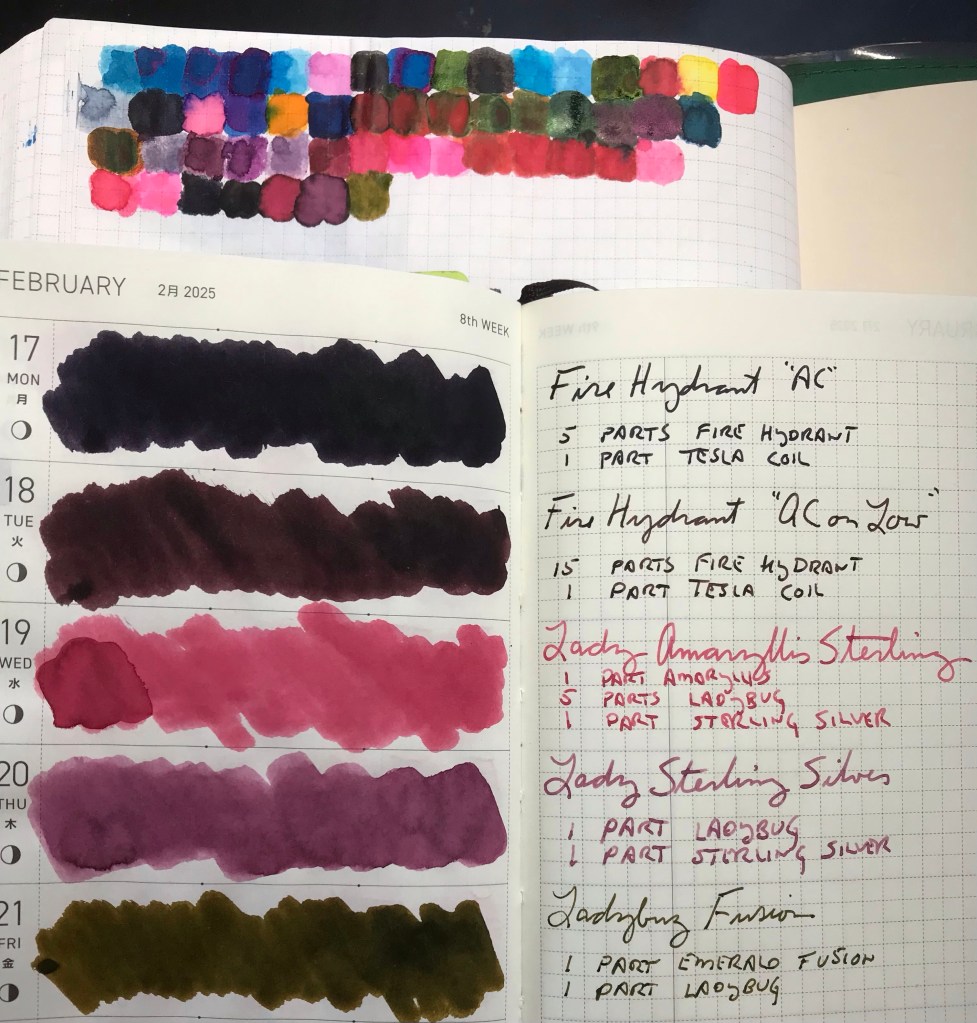 FEBRUARY 2月 2025
8th WEEK
17
MON
月
18
TUE
火
19
WED
水
20
THU
木
21
FRI
金
Fire Hydrant "AC"
5 PARTS FIRE HYDRANT
1 PART TESLA COIL
Fire Hydrant "AC on Low"
15 PARTS FIRE HYDRANT
1 PART TESLA COIL
Lady Amaryllis Sterling
1 PART AMARYLLIS
5 PARTS LADYBUG
1 PART STERLING SILVER
Lady Sterling Silver
1 PART LADYBUG
1 PART STERLING SILVER
Ladybug Fusion
1 PART EMERALD FUSION
1 PART LADYBUG